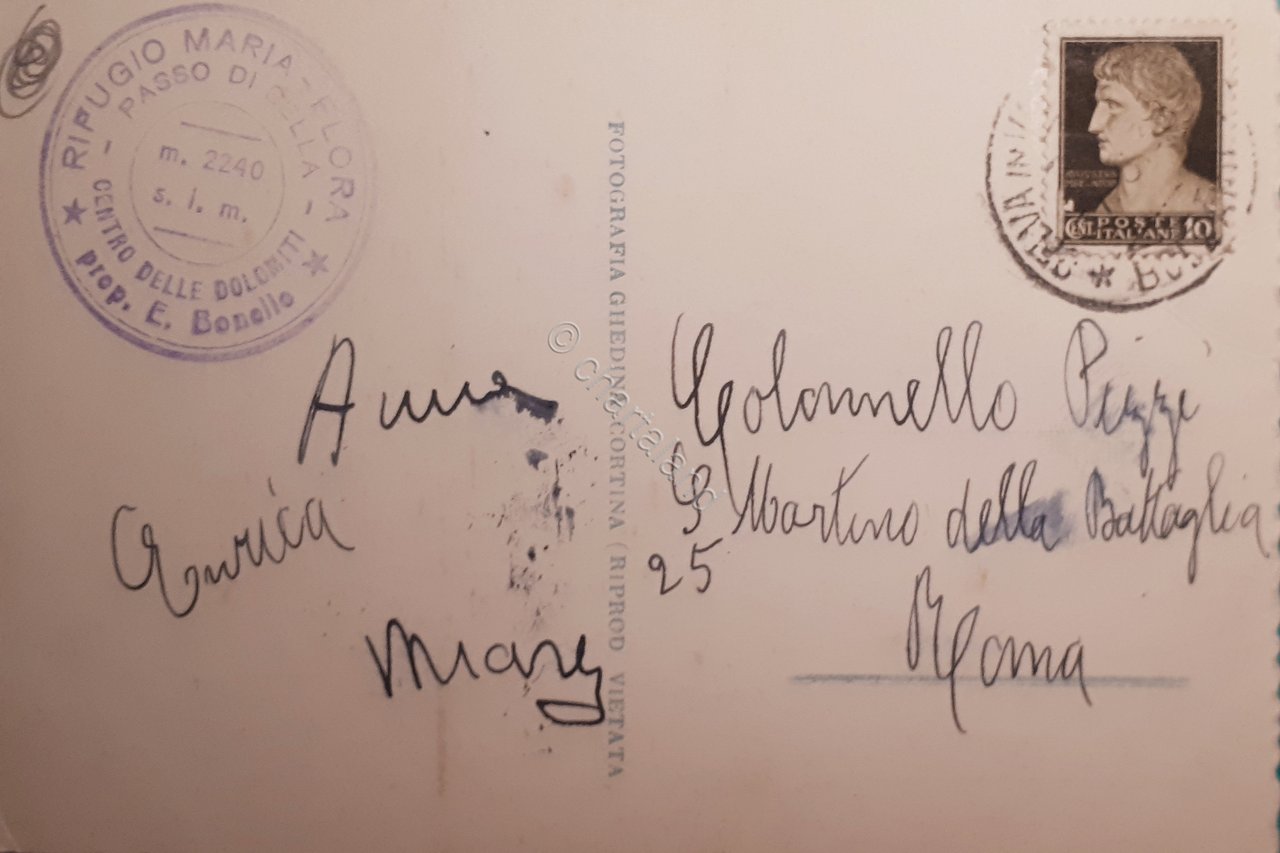 RIFUGIO MARIA-FLORA
- PASSO DI SELLA -
m. 2240
s. l. m.
CENTRO DELLE DOLOMITI
★ prop. E. Bonello ★
POSTE
CENT. ITALIANE 10
SELVA IN
Anna
Enrica
Mary
FOTOGRAFIA GHEDINA CORTINA (RIPROD VIETATA
© chartaland
Colonnello Pizzi
S Martino della Battaglia
25
Roma